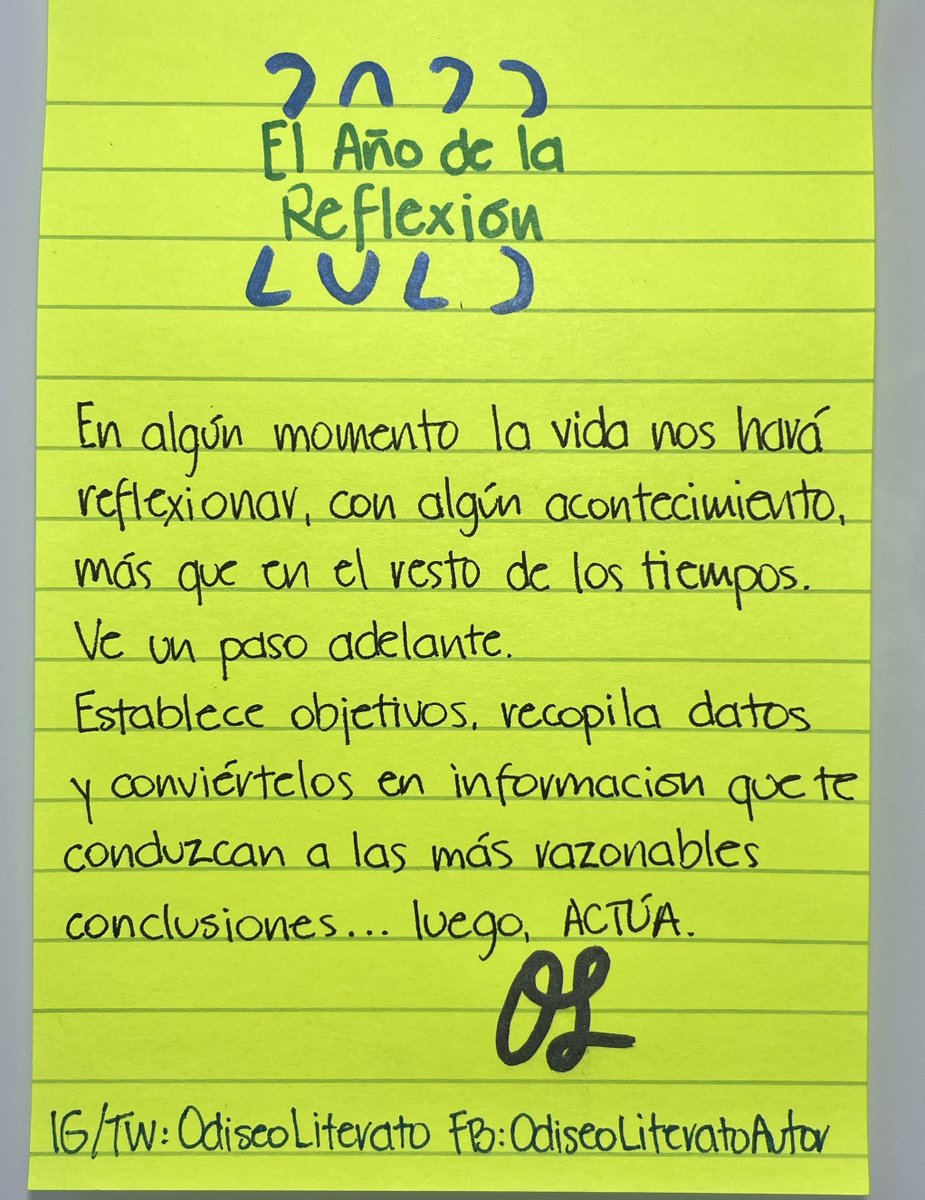 2023
El Año de la
Reflexión
En algún momento la vida nos hará
reflexionar, con algún acontecimiento,
más que en el resto de los tiempos.
Ve un paso adelante.
Establece objetivos, recopila datos
y conviértelos en informacion que te
conduzcan a las más razonables
conclusiones... luego, ACTÚA.
OL
IG/TW: OdiseoLiterato FB: OdiseoLiteratoAutor